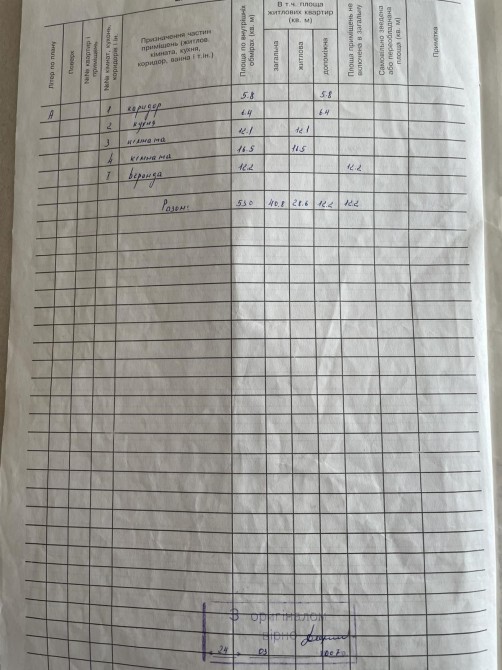 Літер по плану
Поверх
№№ квартир і приміщень
№№ кімнат, кухонь, коридорів і ін.
Призначення частин
приміщень (житлов.
кімната, кухня,
коридор, ванна і т.ін.)
Площа по внутрішніх
обмірах (кв. м)
В т.ч. площа
житлових квартир
(кв. м)
загальна
житлова
допоміжна
Площа приміщень не
включена в загальну
Самовільно зведена
або переобладнана
площа (кв. м)
Примітка
А 1 коридор 5.8 5.8
2 кухня 6.4 6.4
3 кімната 12.1 12.1
4 кімната 16.5 16.5
I веранда 12.2 12.2
Разом: 53.0 40.8 28.6 12.2 12.2
З оригіналом
вірно
24 03